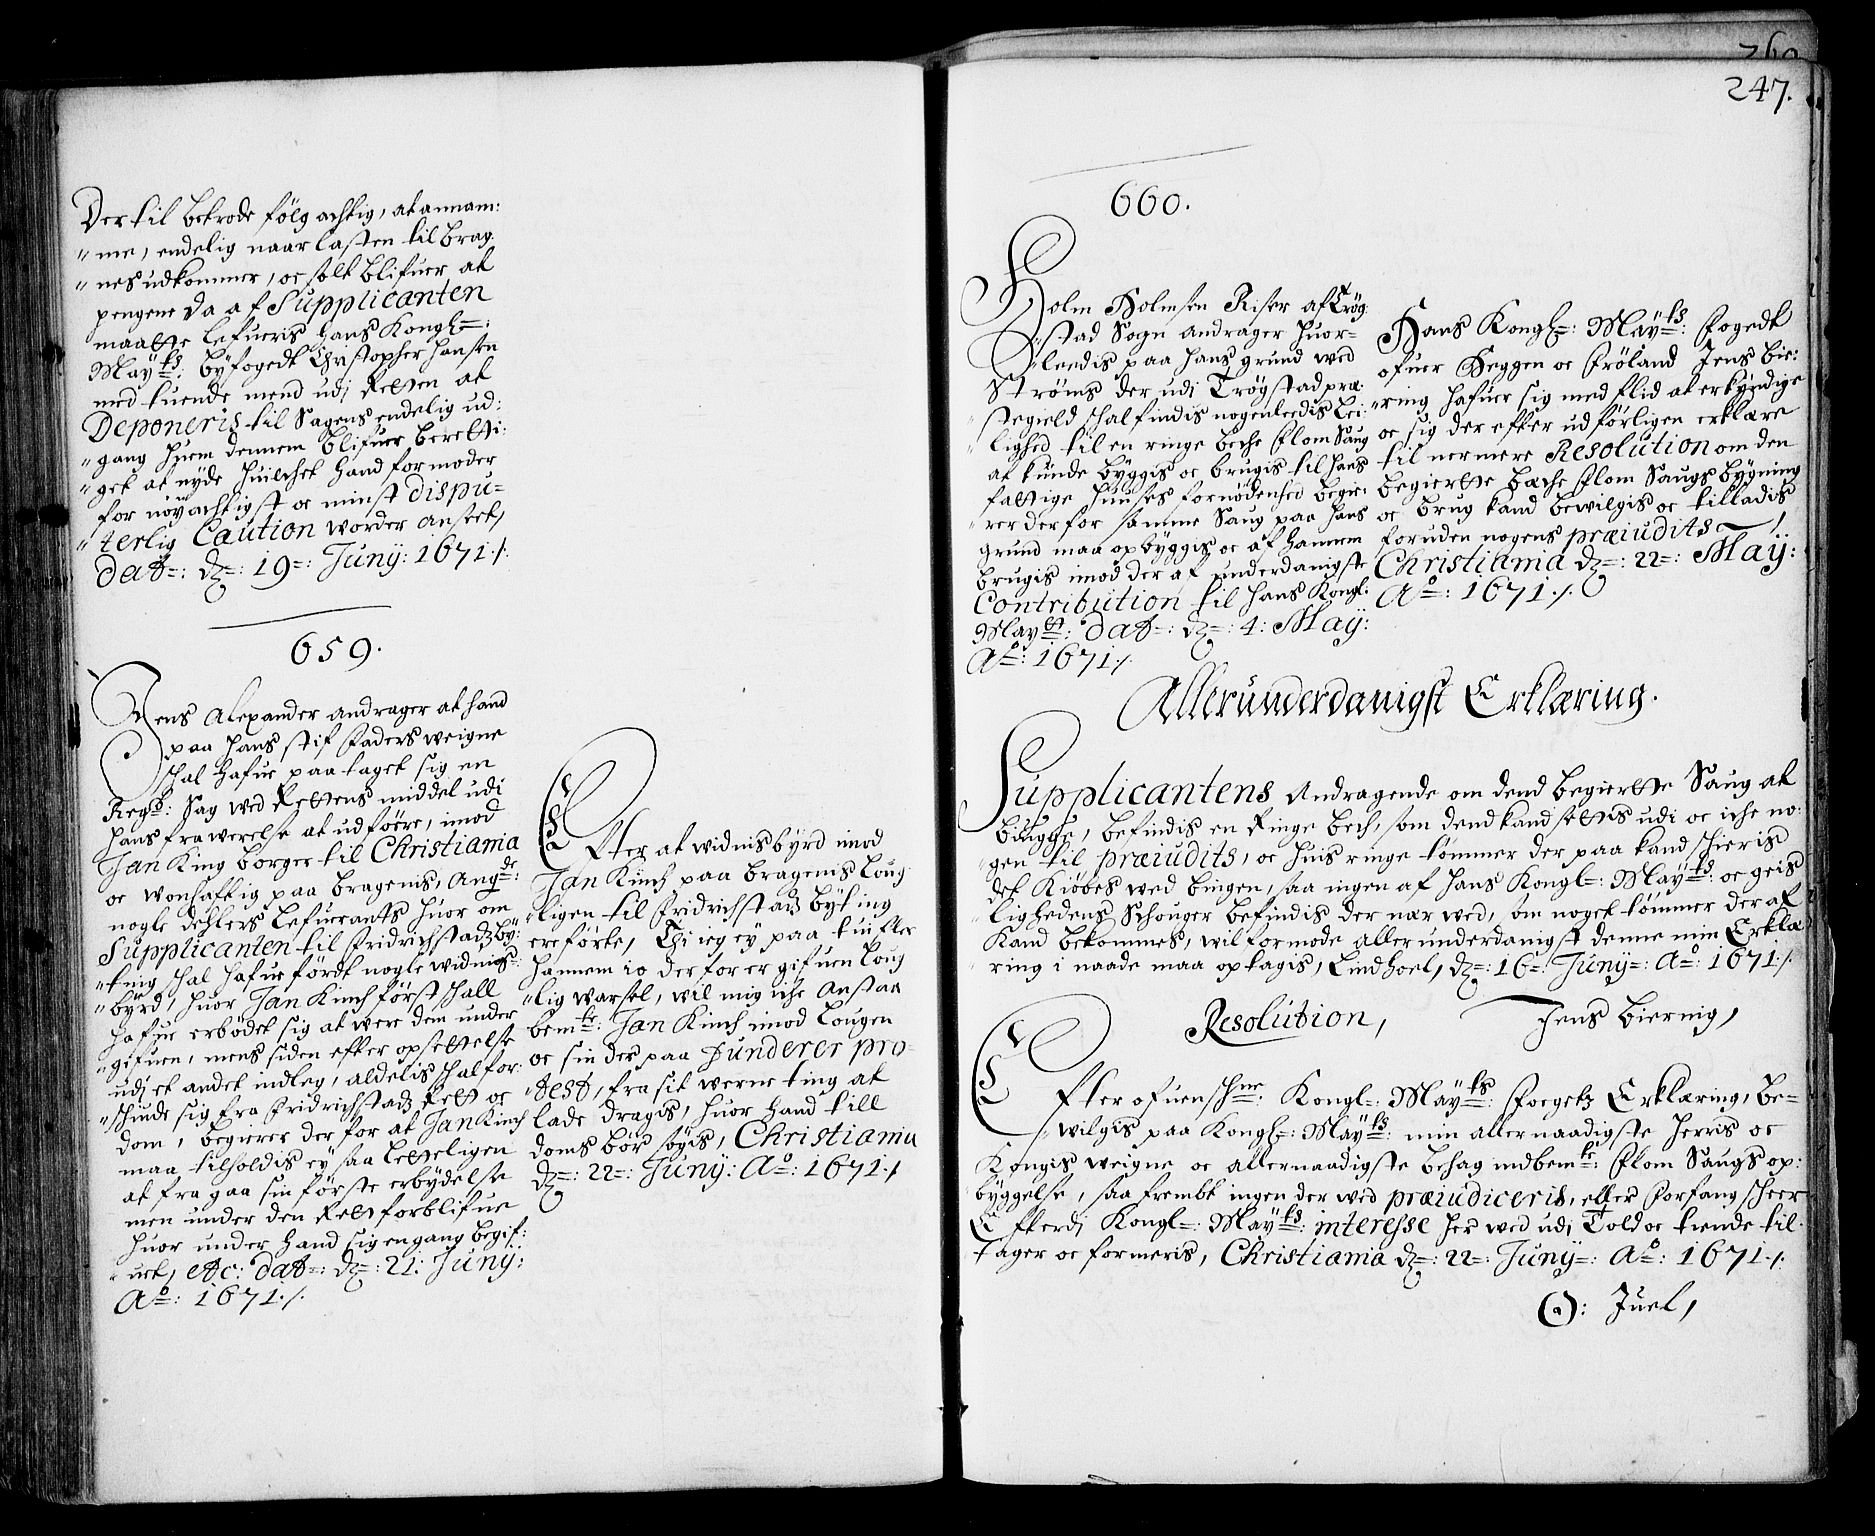 247.
Der til betrode følgachtig, at annam:
" me, endelig naar lasten til Brag:
" nes udkommer, oc solt blifuer at
pengene da af Supplicanten
maatte lefueris Hans Kongl=:
Maÿ:ts: bÿfogedt Christopher Hansen
med tuende mend udj Retten at
Deponeris til Sagens endelig ud:
" gang huem dennem blifuer beretti:
" get at nyde huilchet hand formoder
for nöÿachtigst oc minst dispu=
" terlig Caution worder anseet,
dat=: dz=: 19=: Junÿ: 1671 ./.
659.
Jens Alexander andrager at hand
paa hans stif Faders weigne
schal hafue paa taget sig en
Regs: Sag wed Rettens middel udi
hans frawerelse at udföere, imod
Jan King borger til Christiania
oc wonhafftig paa Bragenis, Angde:
nogle dehlers Lefuerants huor om
Supplicanten til Fridrichstadz bÿ:
" ting schal hafue fördt nogle widnis=
" bÿrd, huor Jan Kinch först schall
hafue erbödet sig at were dem under
" gifuen, mens siden efter opsettelse
udj et andet indleg, aldelis schal for:
" schiude sig fra Fridrichstadz Rett oc
dom, begierer der for at Jan Kinch
maa tilholdis ej saa letteligen
at fra gaa sin förste erbydelse
men under den Rett forblifue
huor under hand sig engang begif:
" uet, etc: dat=: dz=: 21: Junÿ:
Ao=: 1671 ./.
Efter at widnisbÿrd imod
Jan Kinch paa Bragenis Loug
" ligen til Fridrichstadz bÿting
ere förte, Thi ieg ey paa tuifler
hannem io der for er gifuen Loug
" lig warsel, wil mig iche anstaa
bemte: Jan Kinch imod Lougen
oc sin der paa funderer pro=
" test, fra sit werne ting at
lade dragis, huor hand till
doms bör sögis, Christiania
dz=: 22=: Junÿ: Ao=: 1671 ./.
660.
Holm Holmsen Riser af Trög:
" stad Sogn andrager huor=
" leedis paa hans grund wed
Ströms der udi Trögstad præ:
stegield schal findis nogenledis Lei:
" lighed til en ringe beche flom Saug
at kunde bÿggis oc brugis til hans
fattige huuses fornödenhed begie:
" rer derfor samme Saug paa hans
grund maa opbÿggis oc af hannem
brugis imod der af underdanigste
Contribution til Hans Kongl:
Maÿts: dat=: dz=: 4: Maÿ:
Ao=: 1671 ./.
Hans Kongl=: Maÿ:ts: Fogedt
ofuer Heggen oc Fröland Jens Bie:
" ring hafuer sig med flid at erkÿndige
oc sig der efter udförligen erklære
til nermere Resolution om den
begierte Bæche flom Saugs bÿgning
oc brug kand bewilgis oc tilladis
foruden nogens præiudits ./.
Christiania dz=: 22=: Maÿ:
Ao=: 1671 ./.
Allerunderdanigst Erklæring.
Supplicantens Andragende om dend begierte Saug at
bÿgge, befindis en Ringe bech, som dend kand settis udi oc iche no:
" gen til præiudits, oc huis ringe tömmer der paa kand schieris
det Kiöbes wed bingen, saa ingen af Hans Kongl=: Maÿ:ts: oc geist
" lighedens Schouger befindis der nær wed, som noget tömmer der af
Kand bekommes, wil formode allerunderdanigst denne min Erklæ
ring i naade maa optagis, Lindhoel, dz=: 16=: Junÿ=: Ao: 1671 ./.
Resolution, Jens Biernig,
Efter ofuenschne: Kongl=: Maÿ:ts: Foegetz Erklæring, be=
" wilgis paa Kongl=: Maÿ:ts: min allernaadigste Herris oc
Kongis weigne oc allernaadigste behag indbemte: flom Saugs op:
bÿggelse, saa frembt ingen der wed præiudiceris, eller forfang scheer
Efterdj Kongl=: Maÿ:ts: interesse her wed udi Told oc tiende til:
tager oc formeris, Christiania dz=: 22=: Junÿ=: Ao: 1671 ./.
O: Juel,